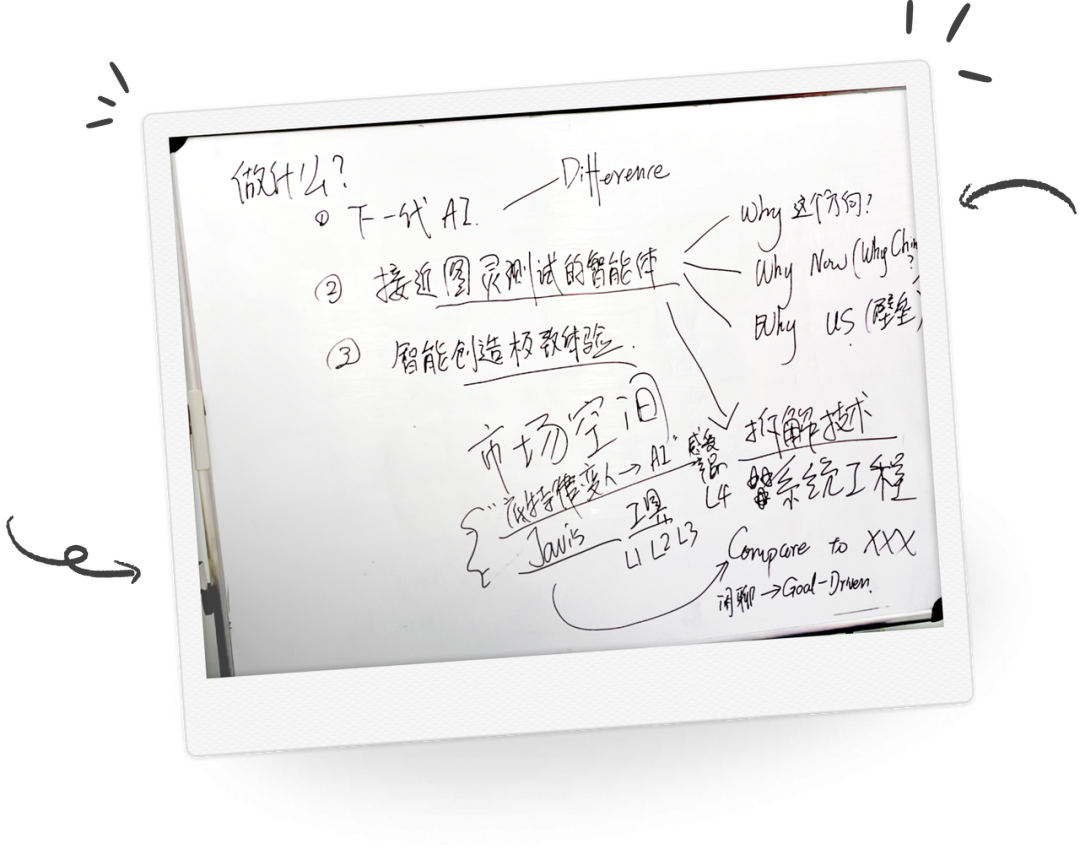 做什么?
① 下一代 AI.
Difference
② 接近图灵测试的智能体
Why 这个方向?
Why Now (Why Chin
?
Why US (壁垒)
③ 智能创造极致体验.
市场空间
"底特律变人 → AI"
Javis
工具
L1 L2 L3
感受
L4
拆解技术
系统工程
Compare to XXX
闲聊 → Goal-Driven.